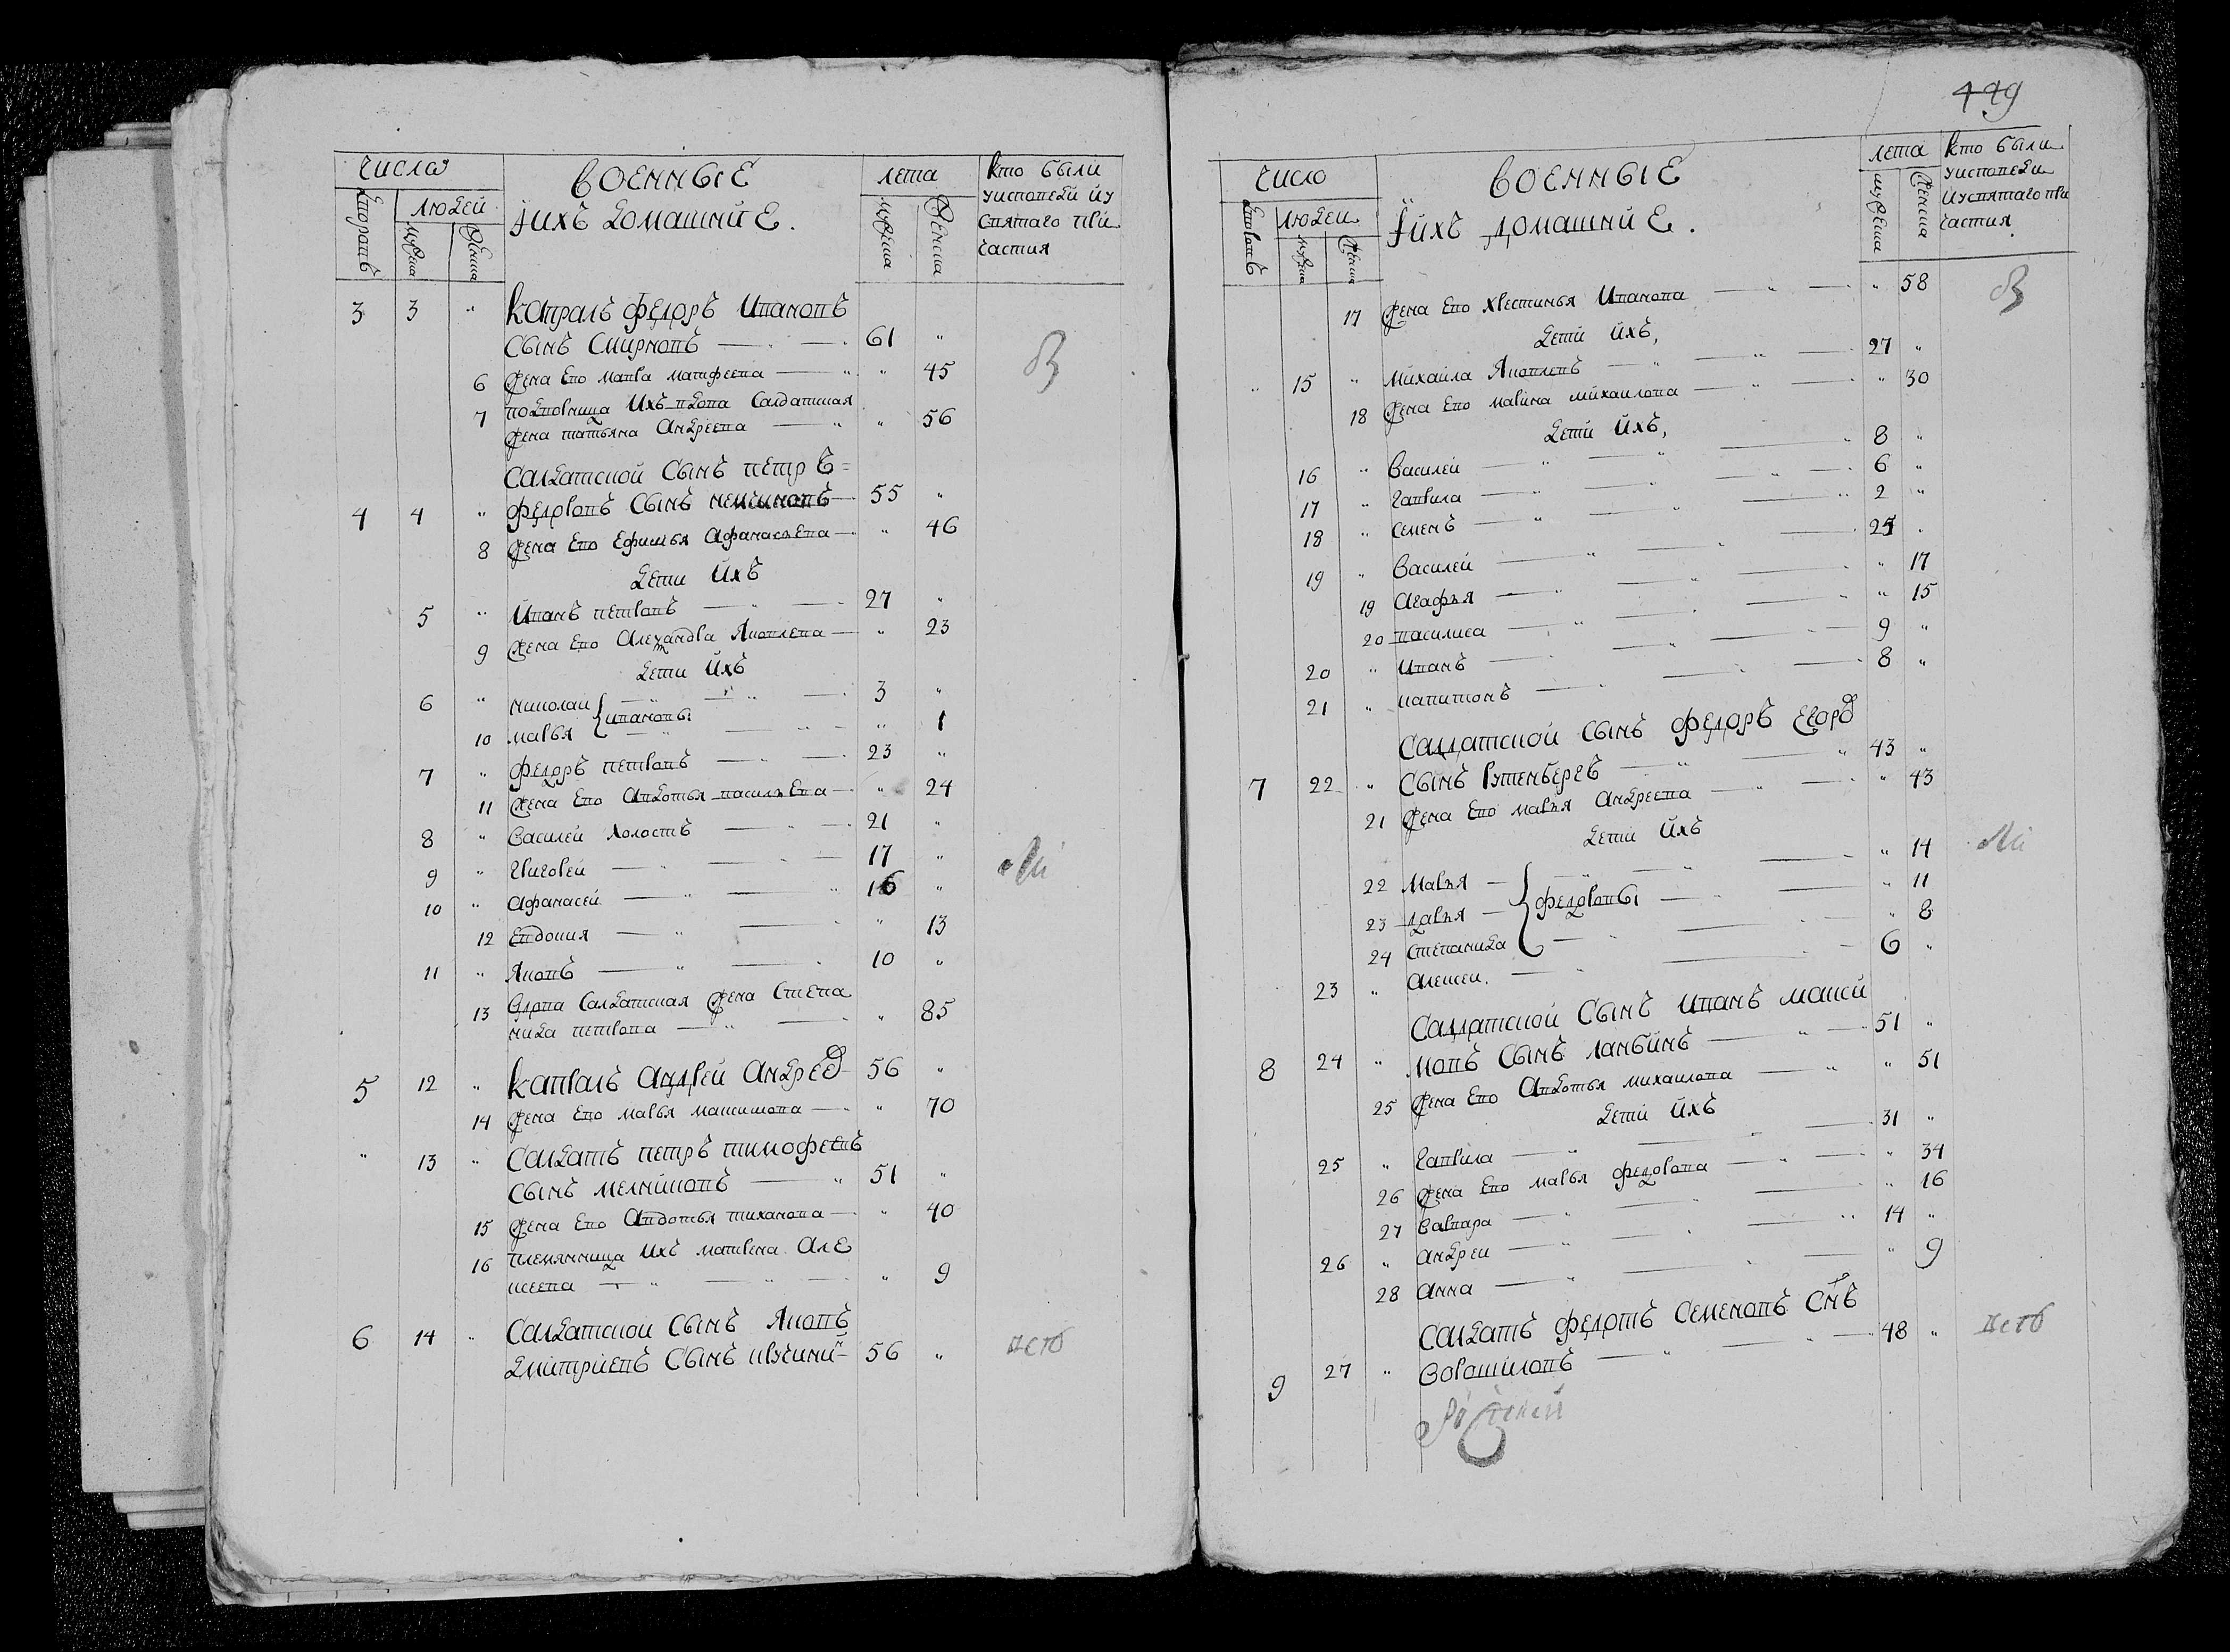 числω
военные
лета
кто были
Дворовъ
людей
їихъ домашние.
мужеска
женска
уисповеди йу
святаго при
мужеска
женска
частия
3 3 " капралъ федоръ Ивановъ
сынъ Смирновъ — 61 "
6 жена Ево мавра матфеева — " 45
7 подворница Ихъ вдова Салдатская
жена татьяна Андреева — " 56
Салдатской Сынъ петръ
4 4 " федоровъ Сынъ — 55 "
8 жена Ево Ефимья Афанасьева — " 46
дети Ихъ
5 " Иванъ петровъ — 27 "
9 жена Ево Александра Яковлева — " 23
дети Ихъ
6 " николай — 3 "
ивановы
10 марья — " 1
7 " федоръ петровъ — 23 "
11 жена Ево Авдотья васильева — " 24
8 " Василей холостъ — 21 "
9 " григорей — 17 "
10 " афанасей — 16 "
12 Евдокия — " 13
11 " Яковъ — 10 "
13 вдова Салдатская жена Степа
нида петрова — " 85
5 12 " капралъ андрей андрее — 56 "
14 жена Ево марья максимова — " 70
" 13 " Салдатъ петръ тимофеевъ
сынъ мелниковъ — 51 "
15 жена Ево Авдотья тиханова — " 40
16 племянница Ихъ матрена Але
ксеева — " 9
6 14 " Салдатской Сынъ Яковъ
Дмитриевъ Сынъ — 56 "
449
число
военные
лета
кто были
Дворовъ
людей
їихъ домашние.
мужеска
женска
уисповеди
мужеска
женска
иусвятаго при
частия
17 жена Ево хрестинья Иванова — " 58
дети ихъ,
15 " михайла Яковлевъ — 27 "
18 жена Ево марина михайлова — " 30
дети ихъ,
16 " василей — 8 "
17 " гаврила — 6 "
18 " семенъ — 2 "
19 " Василей — 25 "
19 Агафья — " 17
20 василиса — " 15
20 " Иванъ — 9 "
21 " капитонъ — 8 "
Салдатской сынъ федоръ Егоро
7 22 " Сынъ рутенбергъ — 43 "
21 жена Ево марья Андреева — " 43
дети Ихъ
22 Марья — " 14
23 дарья — федоровы — " 11
24 степанида — " 8
23 " алексеи. — 6 "
Салдатской Сынъ Иванъ макси
8 24 " мовъ Сынъ ланбинъ — 51 "
25 жена Ево Авдотья михайлова — " 51
дети ихъ
25 " гаврила — 31 "
26 жена Ево марья федорова — " 34
27 варвара — " 16
26 " андреи — 14 "
28 анна — " 9
Салдатъ федотъ Семеновъ Снъ
9 27 " Ворошиловъ — 48 "